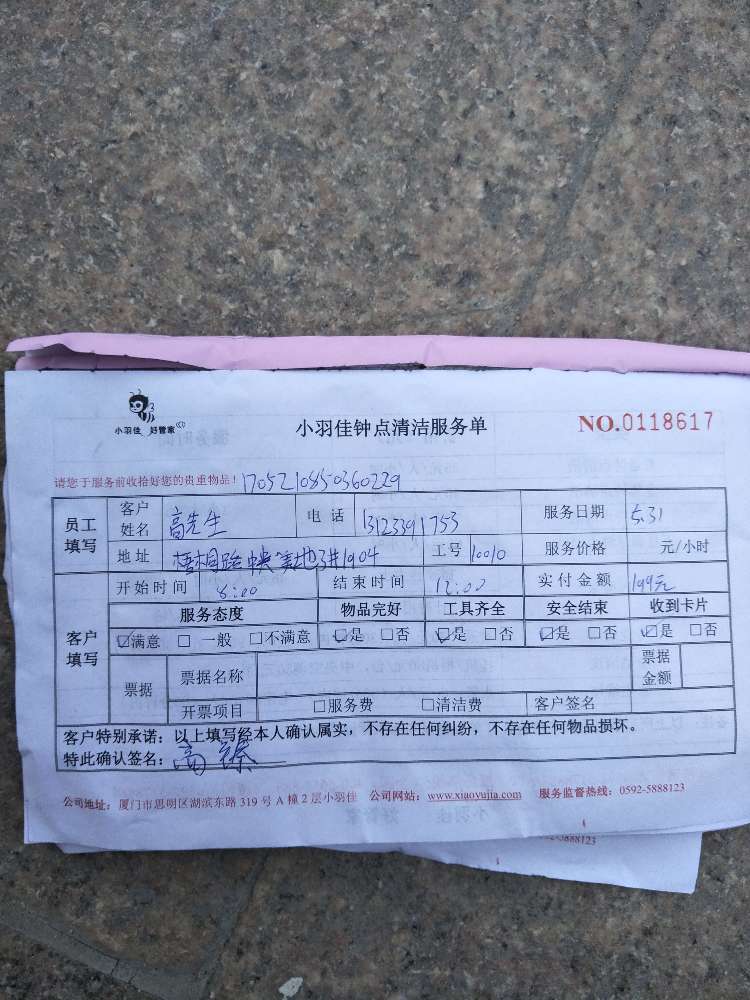 小羽佳 好管家
小羽佳钟点清洁服务单
NO.0118617
请您于服务前收拾好您的贵重物品！1705210850360229
员工填写 客户姓名 高先生 电话 13123391753 服务日期 5.31
地址 梧桐路中央美地3#1904 工号 10010 服务价格 元/小时
客户填写 开始时间 8:00 结束时间 12:00 实付金额 199元
服务态度 物品完好 工具齐全 安全结束 收到卡片
☑满意 □一般 □不满意 ☑是 □否 ☑是 □否 ☑是 □否 ☑是 □否
票据 票据名称 票据金额
开票项目 □服务费 □清洁费 客户签名
客户特别承诺：以上填写经本人确认属实，不存在任何纠纷，不存在任何物品损坏。
特此确认签名：高
公司地址：厦门市思明区湖滨东路 319 号 A 幢 2 层小羽佳 公司网站：www.xiaoyujia.com 服务监督热线：0592-5888123
0592-5888123